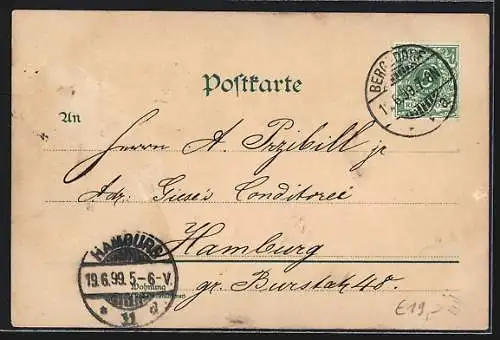 Postkarte
BERGEDORF
6.99.
An
Herrn A. Przibill jr
Adr: Giese's Conditorei
Hamburg
gr. Burstah 48.
HAMBURG
19.6.99. 5-6-V.
Wohnung
* 31 d
£19,-